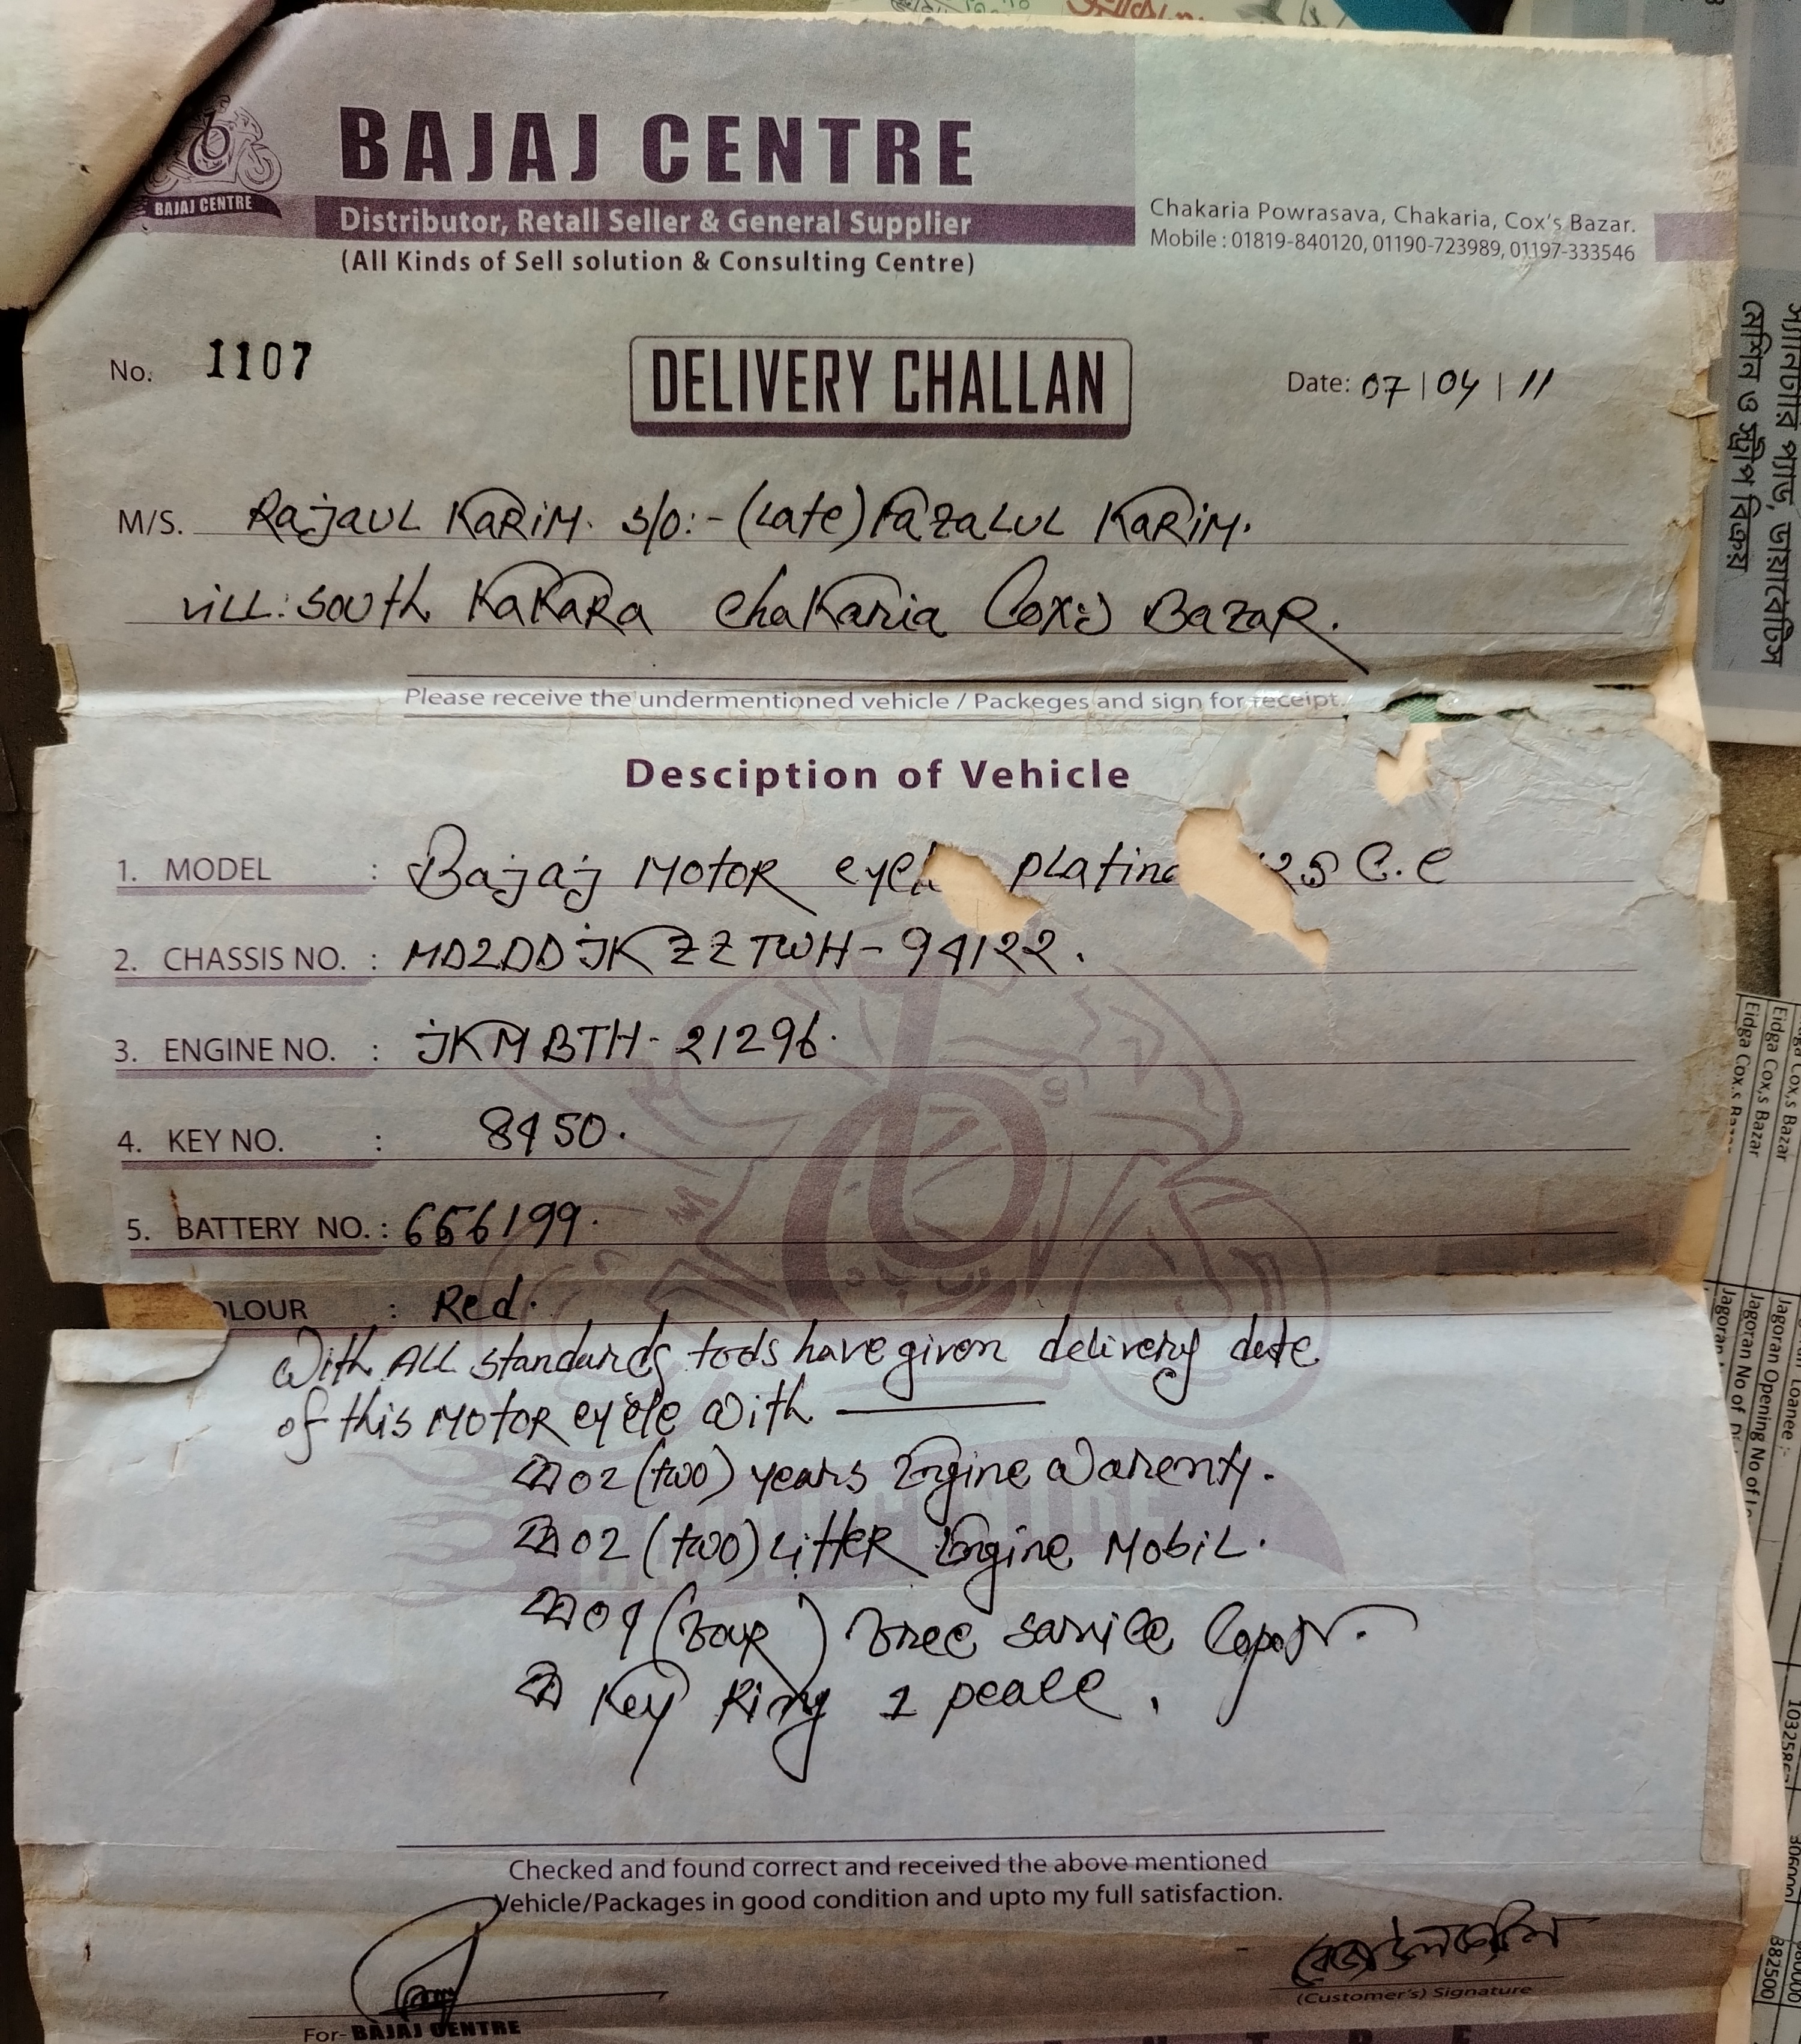 BAJAJ CENTRE
BAJAJ CENTRE
Distributor, Retall Seller & General Supplier
(All Kinds of Sell solution & Consulting Centre)
Chakaria Powrasava, Chakaria, Cox's Bazar.
Mobile : 01819-840120, 01190-723989, 01197-333546
No. 1107
DELIVERY CHALLAN
Date: 07/04/11
M/S. Rajaul Karim. S/O:- (Late) Fazalul Karim.
vill: South Kakara Chakaria Cox's Bazar.
Please receive the undermentioned vehicle / Packeges and sign for receipt.
Desciption of Vehicle
1. MODEL : Bajaj Motor platina C.C
2. CHASSIS NO. : MD2DDJKZZTWH-94122.
3. ENGINE NO. : JKMBTH-21296.
4. KEY NO. : 8450.
5. BATTERY NO. : 656199.
OLOUR : Red.
With ALL standards tools have given delivery date
of this Motor cycle with
02 (two) years Engine Warenty.
02 (two) Litter Engine Mobil.
04 (Four) Free sarvice
Key Ring 1 peace.
Checked and found correct and received the above mentioned
Vehicle/Packages in good condition and upto my full satisfaction.
রেজাউল করিম
(Customer's) Signature
For- BAJAJ CENTRE
সেশিন ও স্ট্রিপ বিক্রয়
Eidga Cox,s Bazar
Eidga Cox,s Bazar
Jagoran Opening No of
Jagoran No of
882500